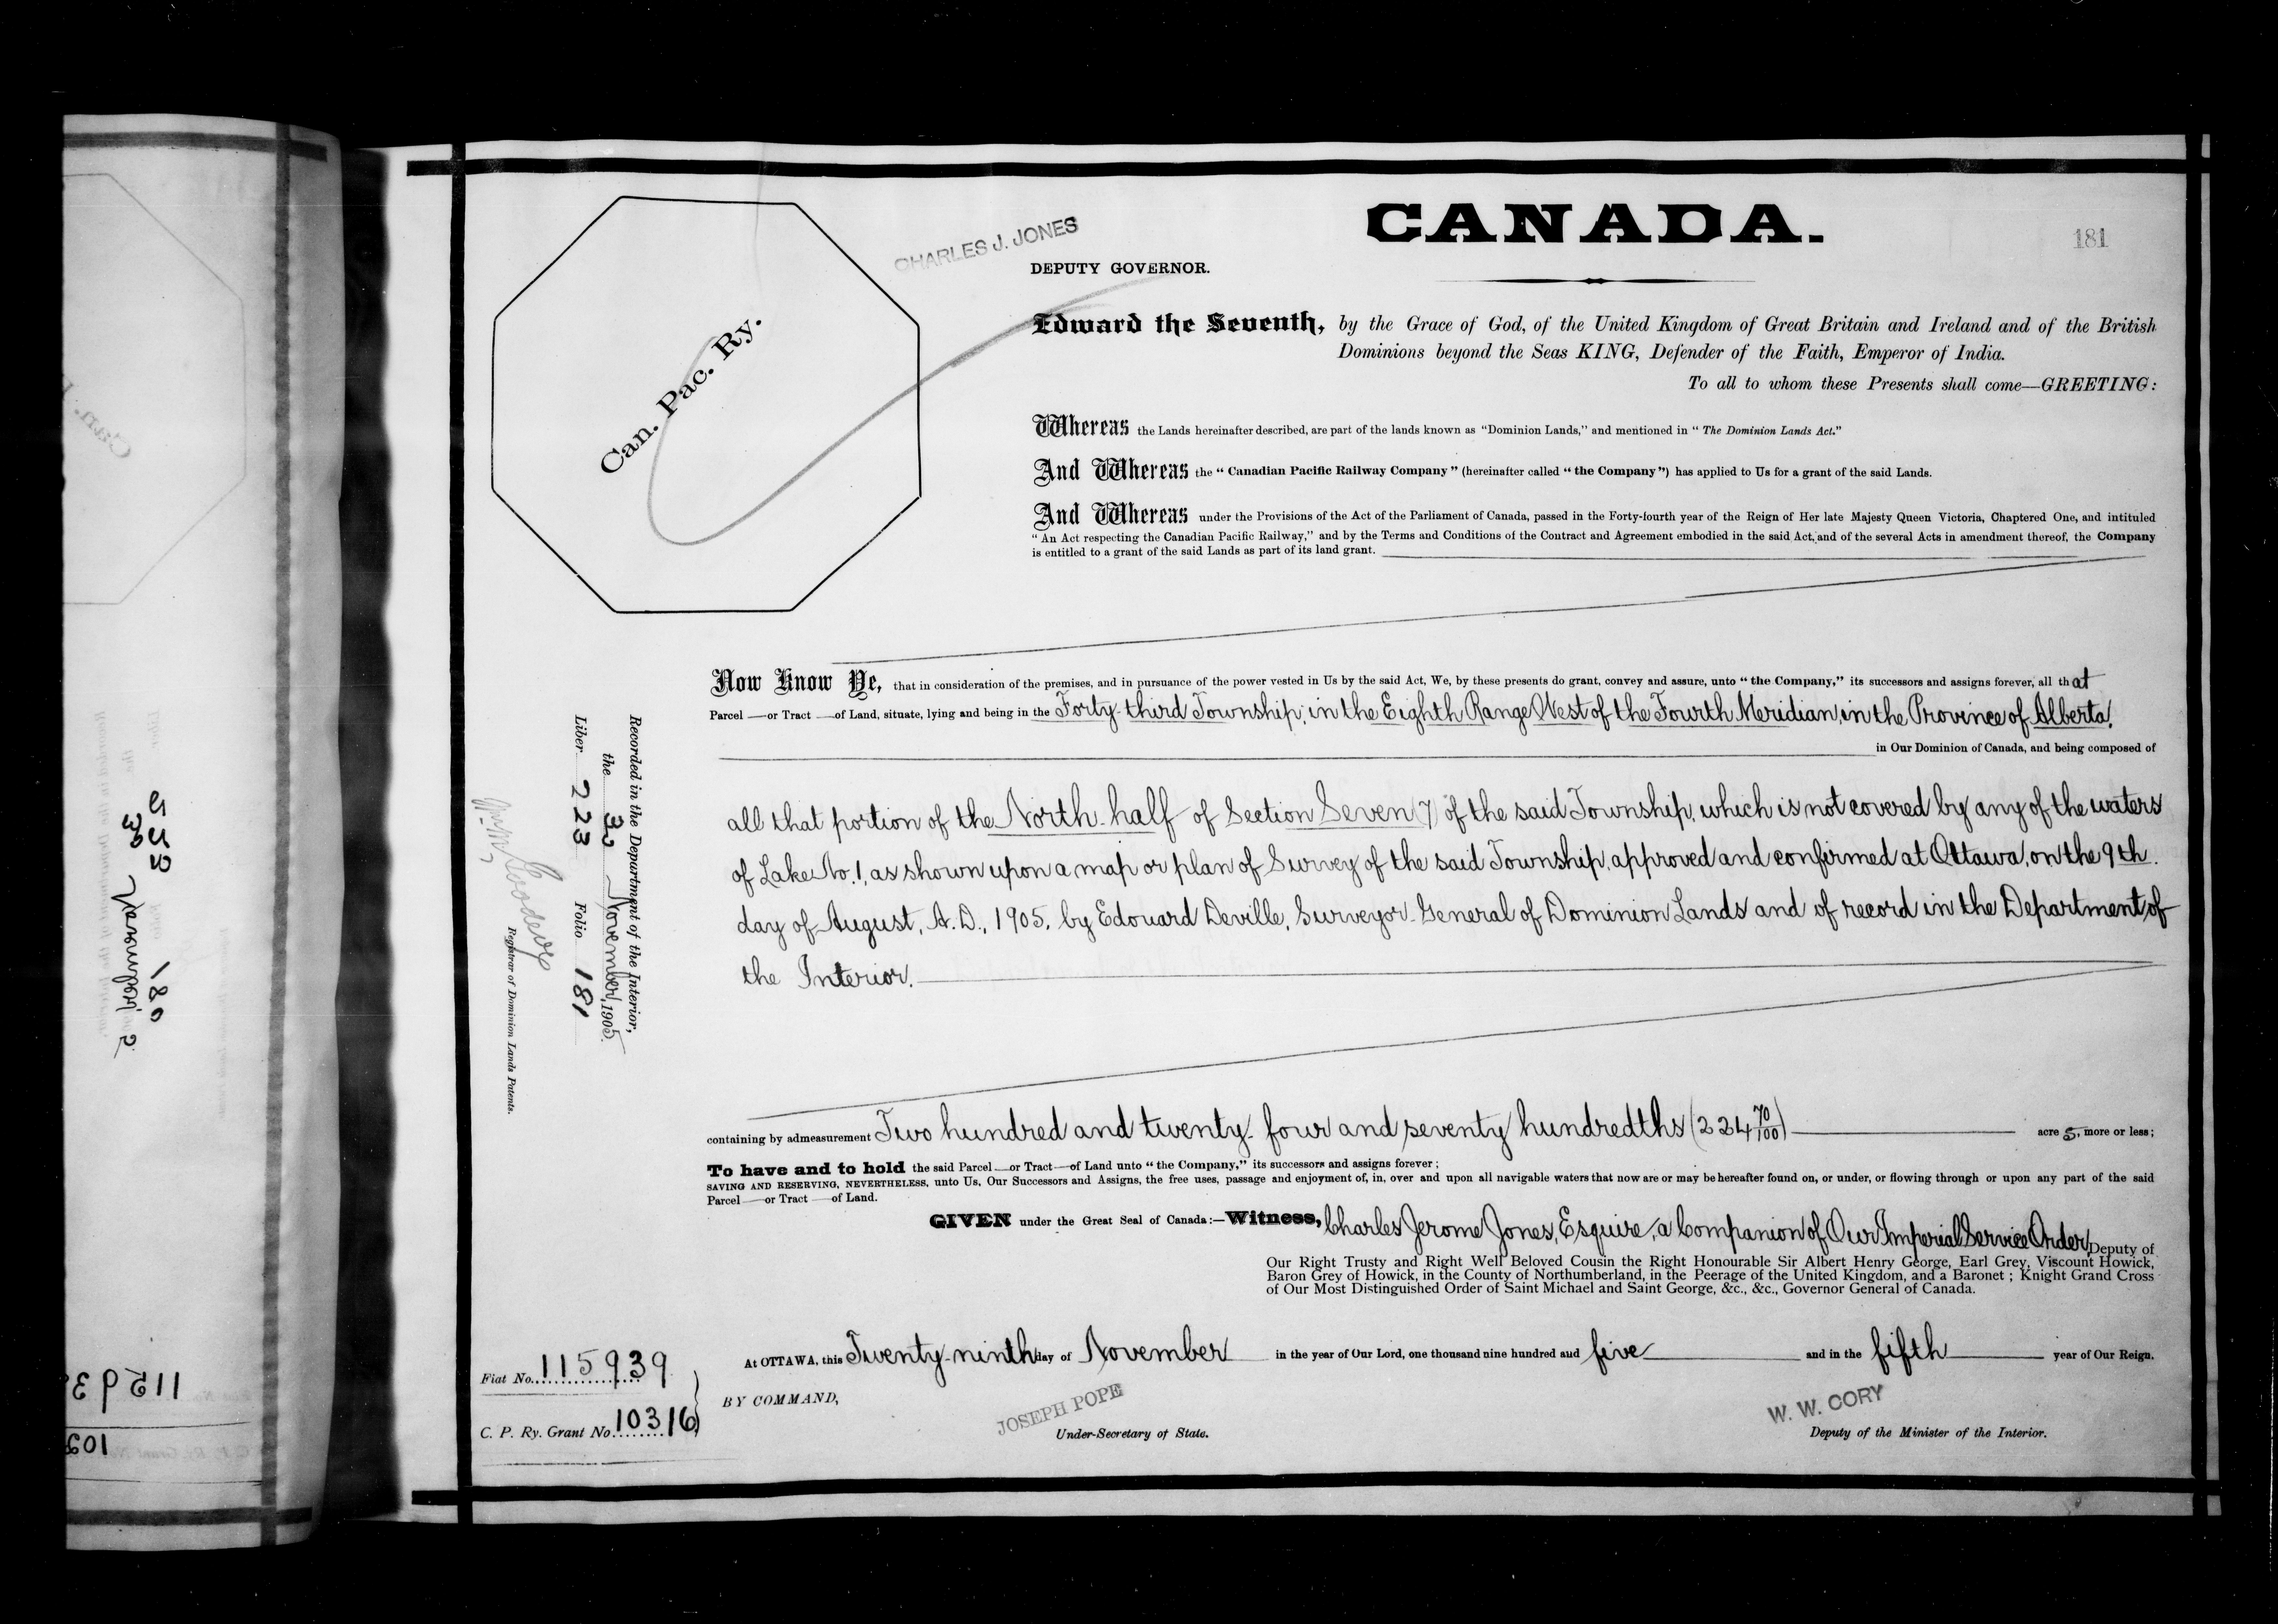 CANADA.
181
CHARLES J. JONES
DEPUTY GOVERNOR.
Can. Pac. Ry.
Edward the Seventh, by the Grace of God, of the United Kingdom of Great Britain and Ireland and of the British
Dominions beyond the Seas KING, Defender of the Faith, Emperor of India.
To all to whom these Presents shall come—GREETING:
Whereas the Lands hereinafter described, are part of the lands known as "Dominion Lands," and mentioned in "The Dominion Lands Act."
And Whereas the "Canadian Pacific Railway Company" (hereinafter called "the Company") has applied to Us for a grant of the said Lands.
And Whereas under the Provisions of the Act of the Parliament of Canada, passed in the Forty-fourth year of the Reign of Her late Majesty Queen Victoria, Chaptered One, and intituled
"An Act respecting the Canadian Pacific Railway," and by the Terms and Conditions of the Contract and Agreement embodied in the said Act, and of the several Acts in amendment thereof, the Company
is entitled to a grant of the said Lands as part of its land grant.
Now Know Ye, that in consideration of the premises, and in pursuance of the power vested in Us by the said Act, We, by these presents do grant, convey and assure, unto "the Company," its successors and assigns forever, all that
Parcel — or Tract — of Land, situate, lying and being in the Forty-third Township, in the Eighth Range West of the Fourth Meridian, in the Province of Alberta,
in Our Dominion of Canada, and being composed of
all that portion of the North-half of Section Seven (7) of the said Township, which is not covered by any of the waters
of Lake No. 1, as shown upon a map or plan of Survey of the said Township, approved and confirmed at Ottawa, on the 9th.
day of August, A.D., 1905, by Edouard Deville, Surveyor-General of Dominion Lands and of record in the Department of
the Interior.
containing by admeasurement Two hundred and twenty-four and seventy hundredths (224 70/100) acres, more or less;
To have and to hold the said Parcel — or Tract — of Land unto "the Company," its successors and assigns forever;
SAVING AND RESERVING, NEVERTHELESS, unto Us, Our Successors and Assigns, the free uses, passage and enjoyment of, in, over and upon all navigable waters that now are or may be hereafter found on, or under, or flowing through or upon any part of the said
Parcel — or Tract — of Land.
GIVEN under the Great Seal of Canada:—Witness, Charles Jerome Jones, Esquire, a Companion of Our Imperial Service Order, Deputy of
Our Right Trusty and Right Well Beloved Cousin the Right Honourable Sir Albert Henry George, Earl Grey, Viscount Howick,
Baron Grey of Howick, in the County of Northumberland, in the Peerage of the United Kingdom, and a Baronet; Knight Grand Cross
of Our Most Distinguished Order of Saint Michael and Saint George, &c., &c., Governor General of Canada.
At OTTAWA, this Twenty-ninth day of November in the year of Our Lord, one thousand nine hundred and five and in the fifth year of Our Reign.
BY COMMAND,
JOSEPH POPE
Under-Secretary of State.
W. W. CORY
Deputy of the Minister of the Interior.
Recorded in the Department of the Interior,
the November, 1905.
Liber 223 Folio 181
Registrar of Dominion Lands Patents.
Fiat No. 115939
C. P. Ry. Grant No. 10316